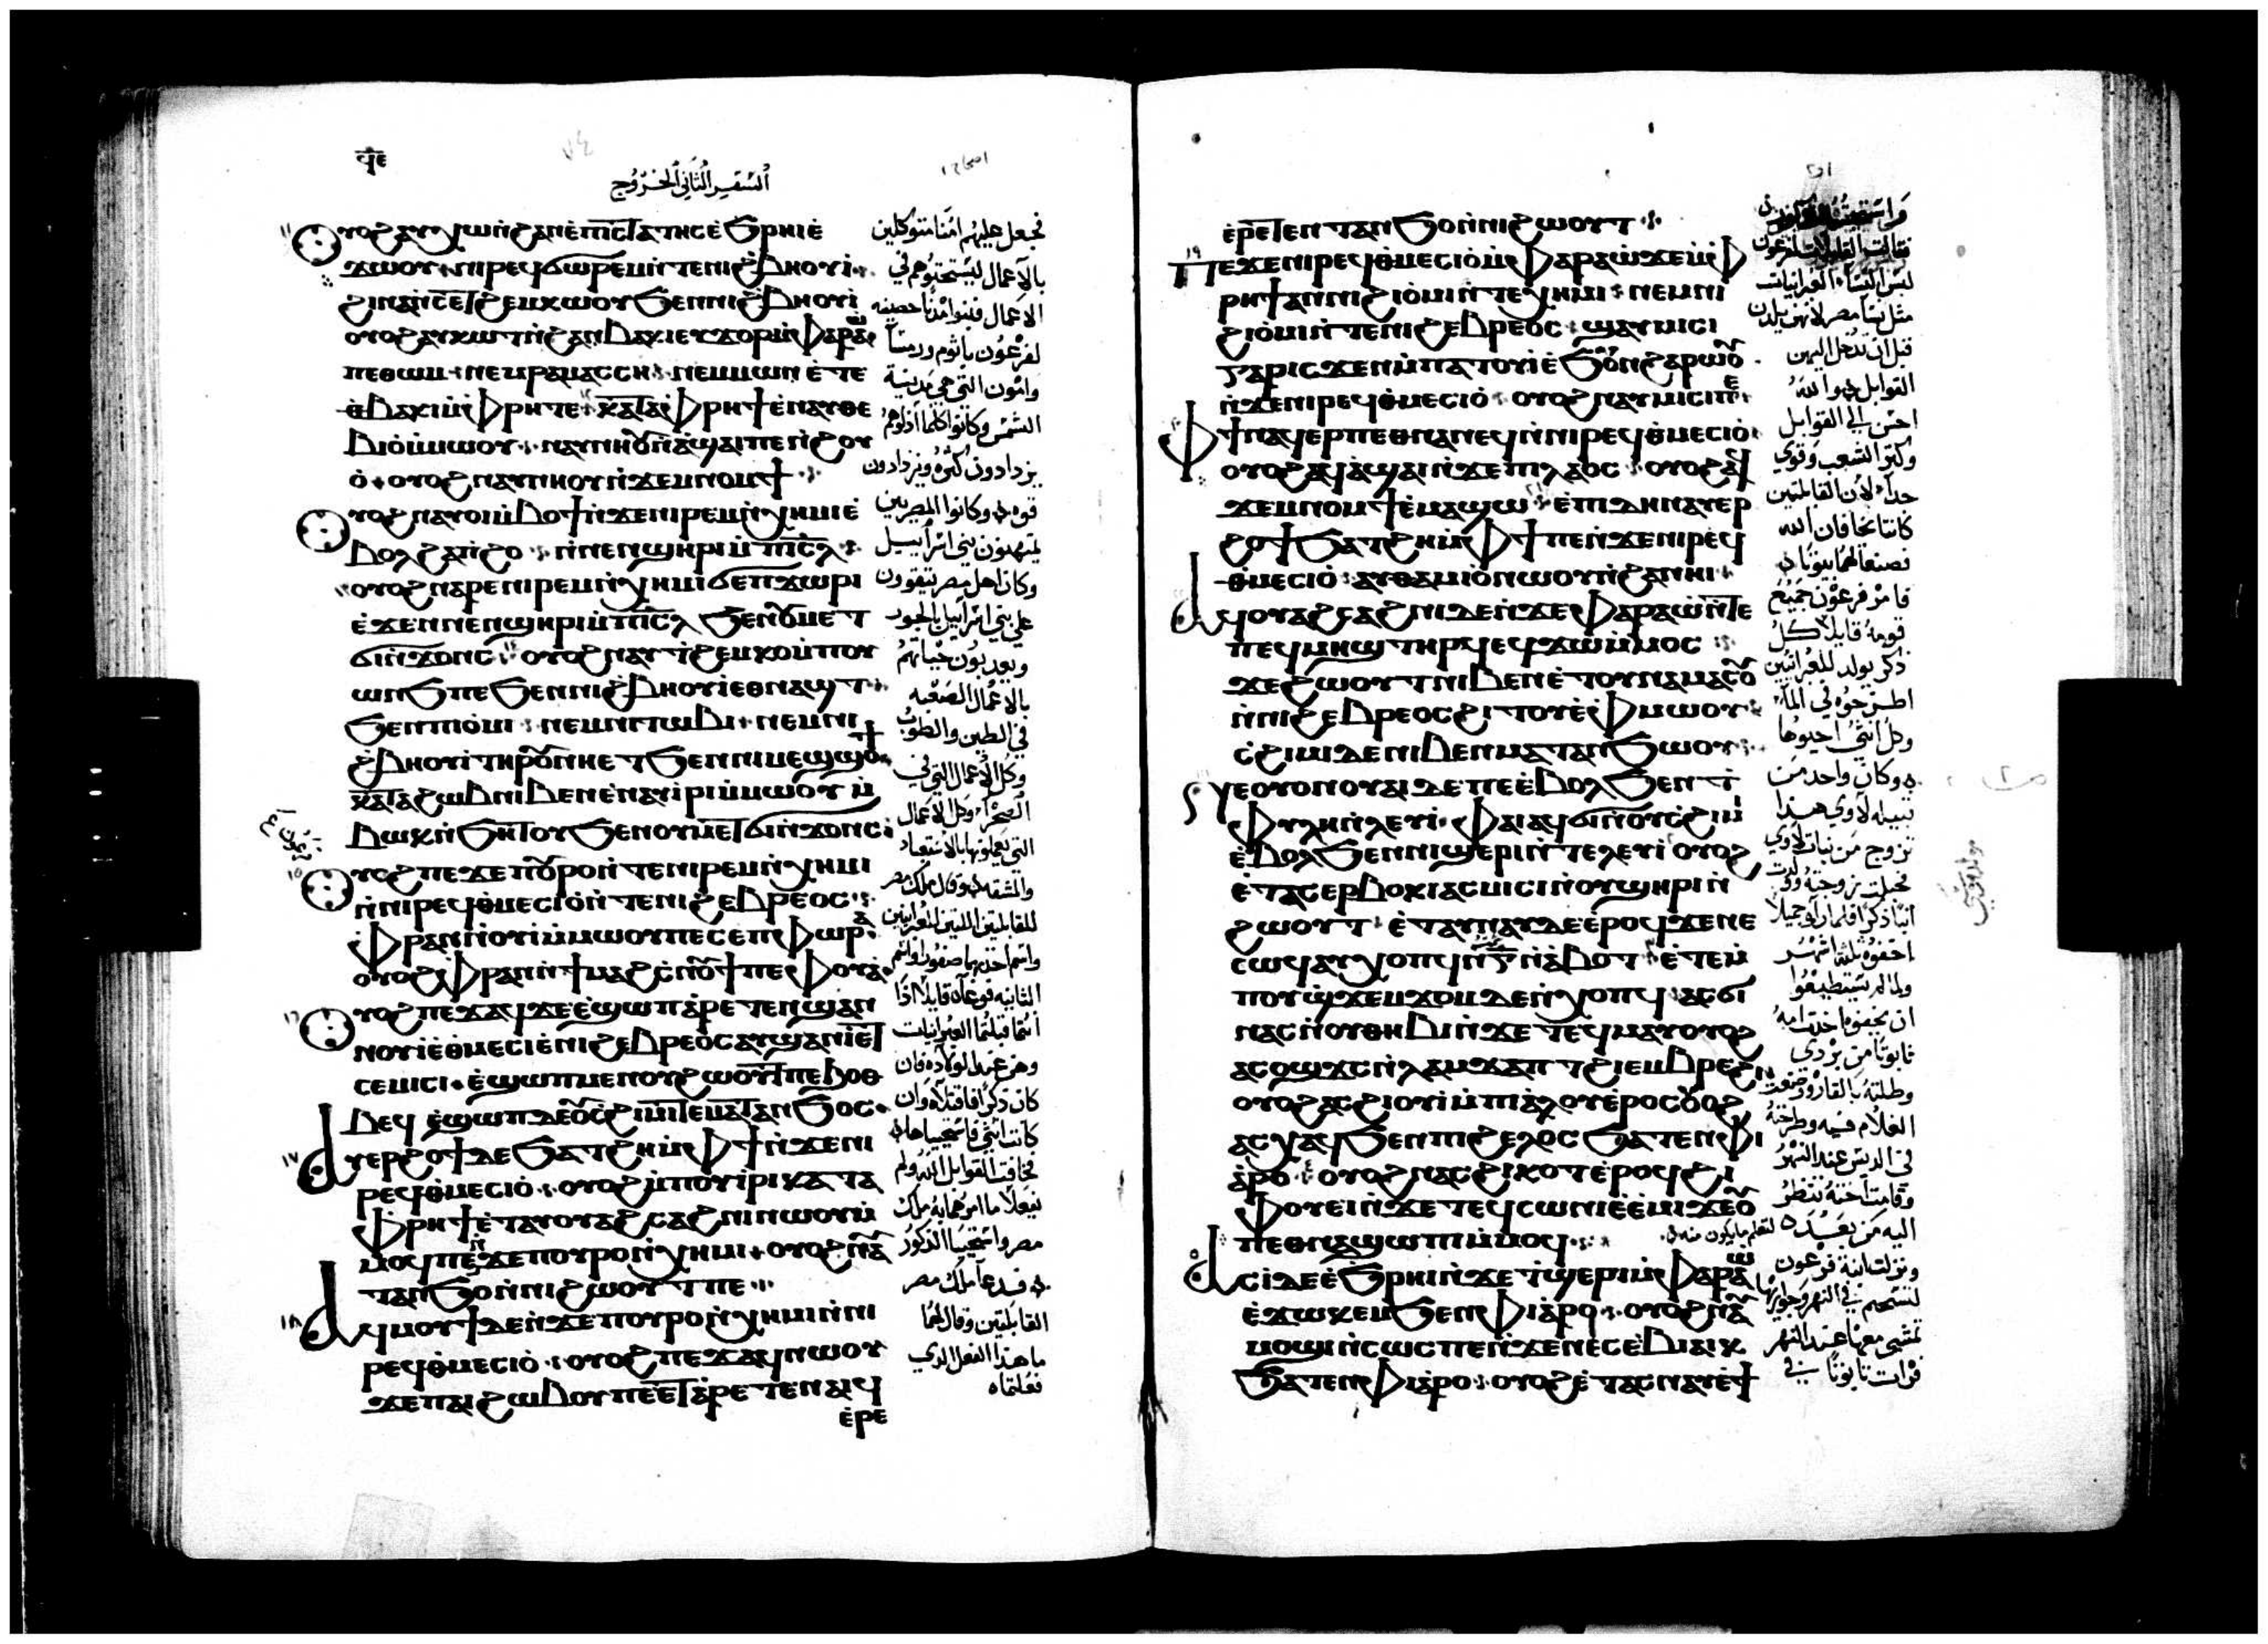 ϥⲉ
السفر الثاني الخروج
ⲟⲩⲟϩ ⲁⲩⲭⲱ ⲛ̀ϩⲁⲛⲉ̀ⲡⲓⲥⲧⲁⲧⲏⲥ ⲉ̀ϧⲣⲏⲓ ⲉ̀
ϫⲱⲟⲩ ⲛⲓⲣⲉϥϭⲱⲣⲉⲙ ⲛ̀ⲧⲉ ⲛⲓϩ̀ⲃⲏⲟⲩⲓ̀
ϩⲓⲛⲁ ⲛ̀ⲥⲉⲧϩⲉⲙⲕⲱⲟⲩ ϧⲉⲛ ⲛⲓϩ̀ⲃⲏⲟⲩⲓ̀
ⲟⲩⲟϩ ⲁⲩⲕⲱⲧ ⲛ̀ϩⲁⲛⲃⲁⲕⲓ ⲉⲩϫⲟⲣ ⲙ̀ⲫⲁⲣⲁⲱ̀
ⲡⲉⲑⲱⲙ ⲛⲉⲙ ⲣⲁⲙⲁⲥⲥⲏ ⲛⲉⲙ ⲱⲛ ⲉ̀ⲧⲉ
ⲑ̀ⲃⲁⲕⲓ ⲙ̀ⲫⲣⲏ ⲧⲉ ⲕⲁⲧⲁ ⲫ̀ⲣⲏϯ ⲉ̀ⲛⲁⲩⲑⲉ
ⲃⲓⲟ̀ ⲙ̀ⲙⲱⲟⲩ ⲛⲁⲩⲛⲏⲟⲩ ⲛ̀ⲁϣⲁⲓ ⲡⲉ ⲛ̀ϩⲟⲩ
ⲟ̀ ⲟⲩⲟϩ ⲛⲁⲩⲛⲏⲟⲩ ⲛ̀ϫⲉⲙⲛⲟⲙϯ
ⲟⲩⲟϩ ⲛⲁⲩⲟⲓ ⲙ̀ⲃⲟϯ ⲛ̀ϫⲉ ⲛⲓⲣⲉⲙⲛ̀ⲭⲏⲙⲓ ⲉ̀
ⲃⲟⲗ ϩⲁⲡ̀ϩⲟ ⲛ̀ⲛⲉⲛϣⲏⲣⲓ ⲙ̀ⲡⲓⲥⲗ
ⲟⲩⲟϩ ⲛⲁⲣⲉ ⲛⲓⲣⲉⲙⲛ̀ⲭⲏⲙⲓ ϭⲉⲛϫⲱⲣⲓ
ⲉ̀ϫⲉⲛ ⲛⲉⲛϣⲏⲣⲓ ⲙ̀ⲡⲓⲥⲗ ϧⲉⲛ ⲟⲩⲙⲉⲧ
ϭⲓⲛ̀ϫⲟⲛⲥ ⲟⲩⲟϩ ⲛⲁⲩϯϩⲉⲙⲕⲟ ⲙ̀ⲡⲟⲩ
ⲱⲛϧ ⲡⲉ ϧⲉⲛ ⲛⲓϩ̀ⲃⲏⲟⲩⲓ̀ ⲉⲑⲛⲁϣⲧ
ϧⲉⲛ ⲡⲓⲟ̀ⲙⲓ ⲛⲉⲙ ⲛⲓⲧⲱⲃⲓ ⲛⲉⲙ ⲛⲓ
ϩ̀ⲃⲏⲟⲩⲓ̀ ⲧⲏⲣⲟⲩ ⲛⲏⲉⲧϧⲉⲛ ⲛⲓⲙⲉϣϣⲟϯ
ⲕⲁⲧⲁ ϩⲱⲃ ⲛⲓⲃⲉⲛ ⲉ̀ⲛⲁⲩⲓ̀ⲣⲓ ⲙ̀ⲙⲱⲟⲩ ⲙ̀
ⲃⲱⲕ ⲛ̀ϧⲏⲧⲟⲩ ϧⲉⲛ ⲟⲩⲙⲉⲧϭⲓⲛ̀ϫⲟⲛⲥ
ⲟⲩⲟϩ ⲡⲉϫⲉ ⲡⲟⲩⲣⲟ ⲛ̀ⲧⲉ ⲛⲓⲣⲉⲙⲛ̀ⲭⲏⲙⲓ
ⲛ̀ⲛⲓⲣⲉϥⲑ̀ⲙⲉⲥⲓⲟ̀ ⲛ̀ⲧⲉ ⲛⲓϩⲉⲃⲣⲉⲟⲥ
ⲫ̀ⲣⲁⲛ ⲛ̀ⲟⲩⲓ̀ ⲙ̀ⲙⲱⲟⲩ ⲡⲉ ⲥⲉⲡⲫⲱⲣⲁ
ⲟⲩⲟϩ ⲫ̀ⲣⲁⲛ ⲛ̀ϯⲙⲁϩⲥ̀ⲛⲟⲩϯ ⲡⲉ ⲫⲟⲩⲁ̀
ⲟⲩⲟϩ ⲡⲉϫⲁϥ ϫⲉ ⲉ̀ϣⲱⲡ ⲁ̀ⲣⲉⲧⲉⲛϣⲁⲛ
ⲛⲟⲩⲓ̀ ⲉ̀ⲑⲙⲉⲥⲓⲉ̀ ⲛⲓϩⲉⲃⲣⲉⲟⲥ ⲁⲩϣⲁⲛⲓ̀ ⲉⲧ
ⲥⲉⲙⲓⲥⲓ ⲉ̀ϣⲱⲡ ⲙⲉⲛ ⲟⲩϩⲱⲟⲩⲧ ⲡⲉ ϧⲟⲑ
ⲃⲉϥ ⲉ̀ϣⲱⲡ ⲇⲉ ⲟⲩⲥ̀ϩⲓⲙⲓ ⲧⲉ ⲙⲁⲧⲁⲛϧⲟⲥ
ⲁⲩⲉⲣϩⲟϯ ⲇⲉ ϧⲁⲧϩⲏ ⲙ̀ⲫϯ ⲛ̀ϫⲉ ⲛⲓ
ⲣⲉϥⲑ̀ⲙⲉⲥⲓⲟ̀ ⲟⲩⲟϩ ⲙ̀ⲡⲟⲩⲓ̀ⲣⲓ ⲕⲁⲧⲁ
ⲫ̀ⲣⲏϯ ⲉ̀ⲧⲁⲩⲟⲩⲁϩⲥⲁϩⲛⲓ ⲛⲱⲟⲩ ⲙ̀
ⲙⲟϥ ⲛ̀ϫⲉ ⲡⲟⲩⲣⲟ ⲛ̀ⲭⲏⲙⲓ ⲟⲩⲟϩ ⲛⲁⲩ
ⲧⲁⲛϧⲟ ⲛ̀ⲛⲓϩⲱⲟⲩⲧ ⲡⲉ
ⲁϥⲙⲟⲩϯ ⲇⲉ ⲛ̀ϫⲉ ⲡⲟⲩⲣⲟ ⲛ̀ⲭⲏⲙⲓ ⲛ̀ⲛⲓ
ⲣⲉϥⲑ̀ⲙⲉⲥⲓⲟ̀ ⲟⲩⲟϩ ⲡⲉϫⲁϥ ⲛⲱⲟⲩ
ϫⲉ ⲡⲁⲓϩⲱⲃ ⲟⲩ ⲡⲉ ⲉⲧⲁ̀ⲣⲉⲧⲉⲛⲁⲓϥ
ⲉ̀ⲣⲉ
فجعل عليهم امنا متوكلين
بالاعمال ليستحثوهم في
الاعمال فبنوا مدنا حصينه
لفرعون باثوم ورمسا
وامون التي هي مدينة
الشمس وكانوا كلما اذلوهم
يزدادون كثره ويزدادون
قوه وكانوا المصريين
يمتهنون بني اسراييل
وكان اهل مصر يتقوون
على بني اسراييل بالجور
ويعذبون حياتهم
بالاعمال الصعبه
في الطين والطوب
وكل الاعمال التي في
الصحرا وكل الاعمال
التي يعملونها بالاستعباد
والمشقه وقال ملك مصر
للقابلتين اللتين للعبرانيين
واسم احدهما صفورا واسم
الثانيه فوعاه قايلا اذا
انتما قبلتما العبرانيات
وهن عند الولاده فان
كان ذكرا فاقتلاه وان
كانت انثى فاستحيياها
فخافت القوابل الله ولم
يفعلا ما امرهما به ملك
مصر واستحييا الذكور
فدعا ملك مصر
القابلتين وقال لهما
ما هذا الفعل الذي
فعلتماه
ⲉ̀ⲣⲉⲧⲉⲛⲧⲁⲛϧⲟ ⲛ̀ⲛⲓϩⲱⲟⲩⲧ
ⲡⲉϫⲉ ⲛⲓⲣⲉϥⲑ̀ⲙⲉⲥⲓⲟ̀ ⲙ̀ⲫⲁⲣⲁⲱ̀ ϫⲉ ⲙ̀ⲫ
ⲣⲏϯ ⲁⲛ ⲛⲓϩⲓⲟ̀ⲙⲓ ⲛ̀ⲧⲉ ⲭⲏⲙⲓ ⲛⲉⲙ ⲛⲓ
ϩⲓⲟ̀ⲙⲓ ⲛ̀ⲧⲉ ⲛⲓϩⲉⲃⲣⲉⲟⲥ ϣⲁⲩⲙⲓⲥⲓ
ⲅⲁⲣⲓⲥϫⲉⲛ ⲙ̀ⲡⲁⲧⲟⲩⲓ̀ ⲉ̀ϧⲟⲩⲛ ϩⲁⲣⲱⲟⲩ
ⲛ̀ϫⲉ ⲛⲓⲣⲉϥⲑ̀ⲙⲉⲥⲓⲟ̀ ⲟⲩⲟϩ ⲛⲁⲩⲙⲓⲥⲓ ⲡⲉ
ⲫϯ ⲛⲁϥⲉⲣⲡⲉⲑⲛⲁⲛⲉϥ ⲛ̀ⲛⲓⲣⲉϥⲑ̀ⲙⲉⲥⲓⲟ̀
ⲟⲩⲟϩ ⲁϥⲁ̀ϣⲁⲓ ⲛ̀ϫⲉ ⲡⲓⲗⲁⲟⲥ ⲟⲩⲟϩ ⲁϥ
ϫⲉⲙⲛⲟⲙϯ ⲉ̀ⲙⲁϣⲱ ⲉ̀ⲡⲓⲇⲏ ⲛⲁⲩⲉⲣ
ϩⲟϯ ϧⲁⲧϩⲏ ⲙ̀ⲫϯ ⲡⲉ ⲛ̀ϫⲉ ⲛⲓⲣⲉϥ
ⲑ̀ⲙⲉⲥⲓⲟ̀ ⲁⲩⲑⲁⲙⲓⲟ̀ ⲛⲱⲟⲩ ⲛ̀ϩⲁⲛⲏⲓ
ⲁϥⲟⲩⲁϩⲥⲁϩⲛⲓ ⲇⲉ ⲛ̀ϫⲉ ⲫⲁⲣⲁⲱ̀ ⲛ̀ⲧⲉ
ⲡⲉϥⲙⲏϣ ⲧⲏⲣϥ ⲉϥϫⲱ ⲙ̀ⲙⲟⲥ
ϫⲉ ϩⲱⲟⲩⲧ ⲛⲓⲃⲉⲛ ⲉ̀ⲧⲟⲩⲛⲁⲙⲁⲥⲟⲩ
ⲛ̀ⲛⲓϩⲉⲃⲣⲉⲟⲥ ϩⲓⲧⲟⲩ ⲉ̀ⲫⲙⲱⲟⲩ
ⲥ̀ϩⲓⲙⲓ ⲇⲉ ⲛⲓⲃⲉⲛ ⲙⲁⲧⲁⲛϧⲱⲟⲩ
ⲛⲉ ⲟⲩⲟⲛ ⲟⲩⲁⲓ ⲇⲉ ⲡⲉ ⲉ̀ⲃⲟⲗ ϧⲉⲛ ϯ
ⲫⲩⲗⲏ ⲛ̀ⲗⲉⲩⲓ̀ ⲫⲁⲓ ⲁϥϭⲓ ⲛ̀ⲟⲩⲥ̀ϩⲓⲙⲓ
ⲉ̀ⲃⲟⲗ ϧⲉⲛ ⲛⲓϣⲉⲣⲓ ⲛ̀ⲧⲉ ⲗⲉⲩⲓ̀ ⲟⲩⲟϩ
ⲉ̀ⲧⲁⲥⲉⲣⲃⲟⲕⲓ ⲁⲥⲙⲓⲥⲓ ⲛ̀ⲟⲩϣⲏⲣⲓ ⲛ̀
ϩⲱⲟⲩⲧ ⲉ̀ⲧⲁⲩⲛⲁⲩ ⲇⲉ ⲉ̀ⲣⲟϥ ϫⲉ ⲛⲉ
ⲥⲱϥ ⲁⲩⲭⲟⲡϥ ⲛ̀ⲅ̄ ⲛ̀ⲁ̀ⲃⲟⲧ ⲉ̀ⲧⲉⲙ̀
ⲡⲟⲩϣ̀ϫⲉⲙϫⲟⲙ ⲇⲉ ⲛ̀ⲭⲟⲡϥ ⲁⲥϭⲓ
ⲛⲁⲥ ⲛ̀ⲟⲩⲑⲏⲃⲓ ⲛ̀ϫⲉ ⲧⲉϥⲙⲁⲩ ⲟⲩⲟϩ
ⲁⲥⲟϣϫⲥ ⲛ̀ⲗⲁⲙϫⲁⲡⲧ ϩⲓ ⲉⲙⲃⲣⲉϩⲓ
ⲟⲩⲟϩ ⲁⲥϩⲓⲟⲩⲓ̀ ⲙ̀ⲡⲓⲁ̀ⲗⲟⲩ ⲉ̀ⲣⲟⲥ ⲟⲩⲟϩ
ⲁⲥⲭⲁϥ ϧⲉⲛ ⲡⲓϩⲉⲗⲟⲥ ϧⲁⲧⲉⲛ ⲫⲓ
ⲁ̀ⲣⲟ ⲟⲩⲟϩ ⲛⲁⲥϩⲓⲕⲟⲧ ⲉ̀ⲣⲟϥ ϩⲓ
ⲫⲟⲩⲉⲓ ⲛ̀ϫⲉ ⲧⲉϥⲥⲱⲛⲓ ⲉ̀ⲉ̀ⲙⲓ ϫⲉ ⲟⲩ
ⲡⲉⲑⲛⲁϣⲱⲡⲓ ⲙ̀ⲙⲟϥ
ⲁⲥⲓ̀ ⲇⲉ ⲉ̀ϧⲣⲏⲓ ⲛ̀ϫⲉ ⲧ̀ϣⲉⲣⲓ ⲙ̀ⲫⲁⲣⲁⲱ̀
ⲉ̀ϫⲱⲕⲉⲙ ϧⲉⲛ ⲫⲓⲁ̀ⲣⲟ ⲟⲩⲟϩ ⲛⲁⲩ
ⲙⲟϣⲓ ⲛ̀ⲥⲱⲥ ⲡⲉ ⲛ̀ϫⲉ ⲛⲉⲥⲉ̀ⲃⲓⲁⲓⲕ
ϧⲁⲧⲉⲛ ⲫⲓⲁ̀ⲣⲟ ⲟⲩⲟϩ ⲉ̀ⲧⲁⲥⲛⲁⲩ ⲉ̀ϯ
فقالت القوابل لفرعون
ليس النسا العبرانيات
مثل نسا مصر لانهن يلدن
قبل ان تدخل اليهن
القوابل والله
احسن الى القوابل
وكثر الشعب وقوي
جدا لان القابلتين
كانتا تخافان الله
فصنعا لهما بيوتا
فامر فرعون جميع
قومه قايلا كل
ذكر يولد للعبرانيين
اطرحوه في الما
وكل انثى احيوها
وكان واحد من
قبيله لاوي هذا
تزوج من بنات لاوي
فحبلت زوجته وولدت
ابنا ذكرا فلما راوه جميلا
اخفوه ثلثه اشهر
ولما لم يستطيعوا
ان يخفوه اخذت امه
تابوتا من بردي
وطلته بالقار ووضعت
الغلام فيه وطرحته
في الديس عند النهر
وقامت اخته تنظر
اليه من بعد لتعلم ما يكون منه
ونزلت ابنة فرعون
لتستحم في النهر وجواريها
تمشي معها عند النهر
فرات تابوتا في